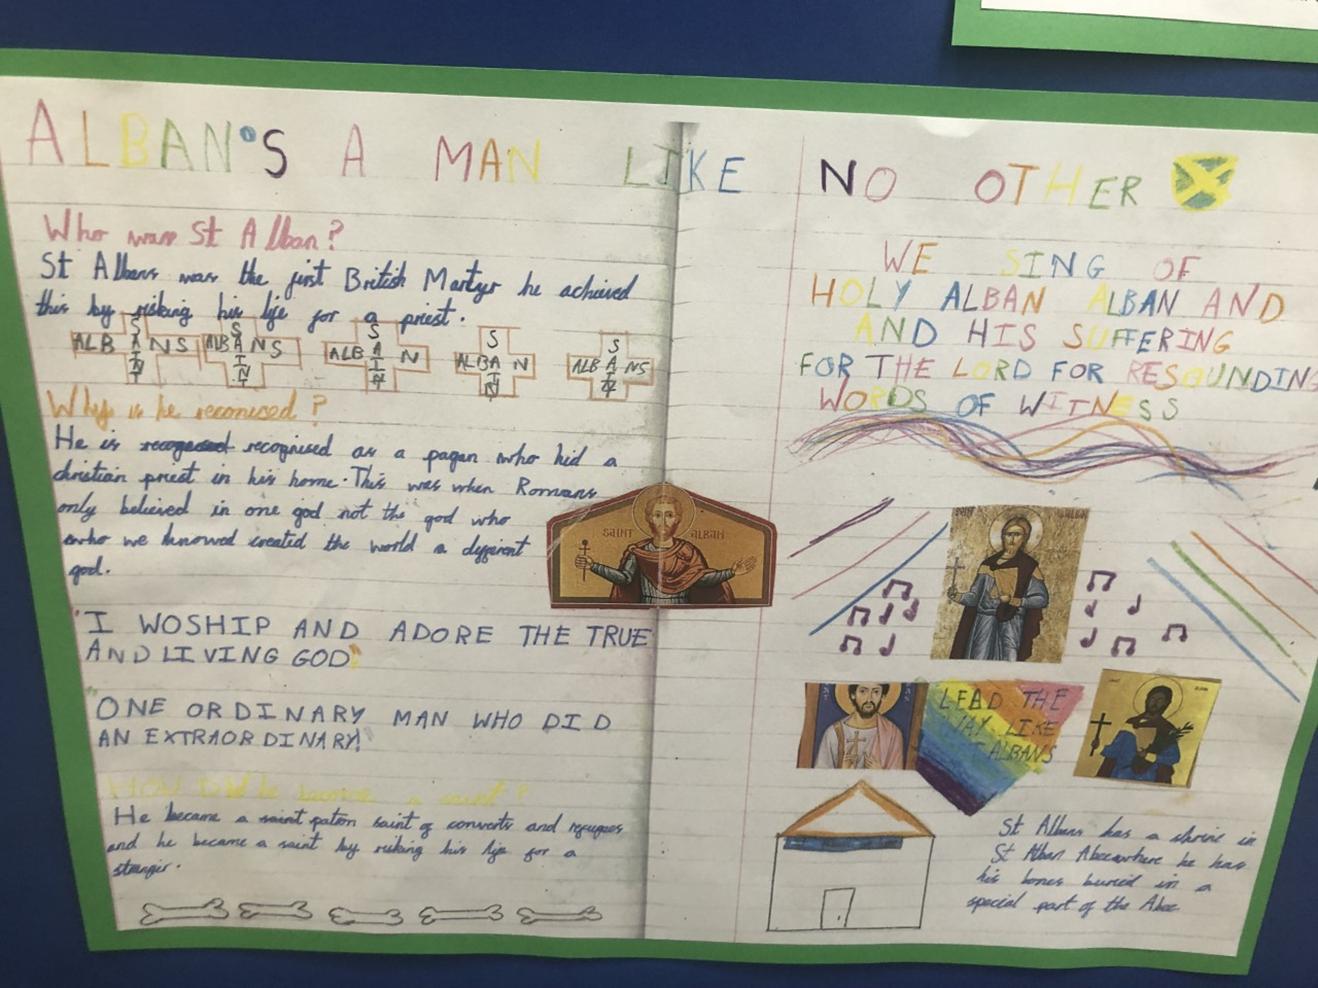 ALBAN'S A MAN LIKE NO OTHER
Who was St Alban?
St Albans was the first British Martyr he achieved
this by risking his life for a priest.
ALB A NS SAINT
ALB A NS SAINT
ALB A N SAIN
ALBA N SAIN
ALB A NS SAIN
Why is he reconised?
He is recognised as a pagan who hid a
christian priest in his home. This was when Romans
only believed in one god not the god who
who we knowed created the world a dyfferent
god.
"I WOSHIP AND ADORE THE TRUE
AND LIVING GOD"
"ONE ORDINARY MAN WHO DID
AN EXTRAORDINARY"
HOW Did he become a saint?
He became a saint patron saint of converts and refugees
and he became a saint by risking his life for a
stranger.
SAINT ALBAN
WE SING OF
HOLY ALBAN ALBAN AND
AND HIS SUFFERING
FOR THE LORD FOR RESOUNDING
WORDS OF WITNESS
SAINT ALBAN
LEAD THE
WAY LIKE
ST ALBANS
St Albans has a shrine in
St Alban Abee where he has
his bones buried in a
special part of the Abee